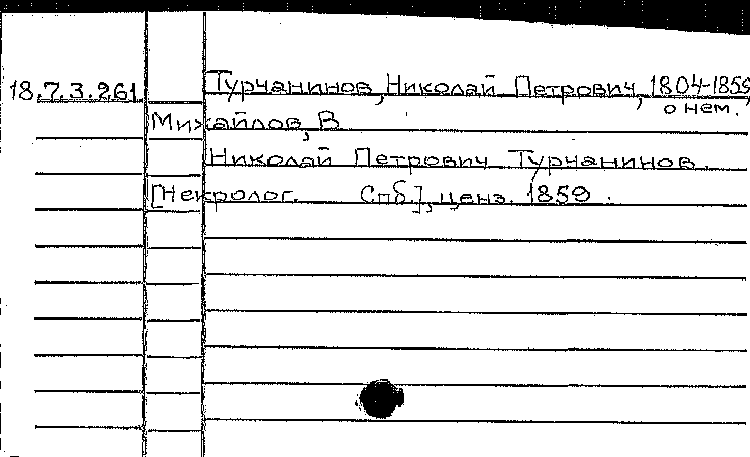 18.7.3.261 Турчанинов, Николай Петрович, 1804-1859,
о нем.
Михайлов, В.
Николай Петрович Турчанинов.
[Некролог. Спб.], ценз. 1859.